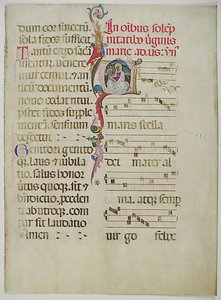 dum cor sincerum
sola fides sufficit
Tantum ergo sacra
mentum. venere
mur cernui. et an
ticum documentum
novo cedat ritui.
prestet fides supple
mentum. sensuum
defectui.
Genitori genito
que. laus et iubila
tio. salus honor
virtus quoque. sit et
benedictio. preceden
ti ab utroque. com
par sit laudatio
Amen
In omnibus
virginis
marie ad
maris stella
dei mater al
ma. atque semp
virgo felix